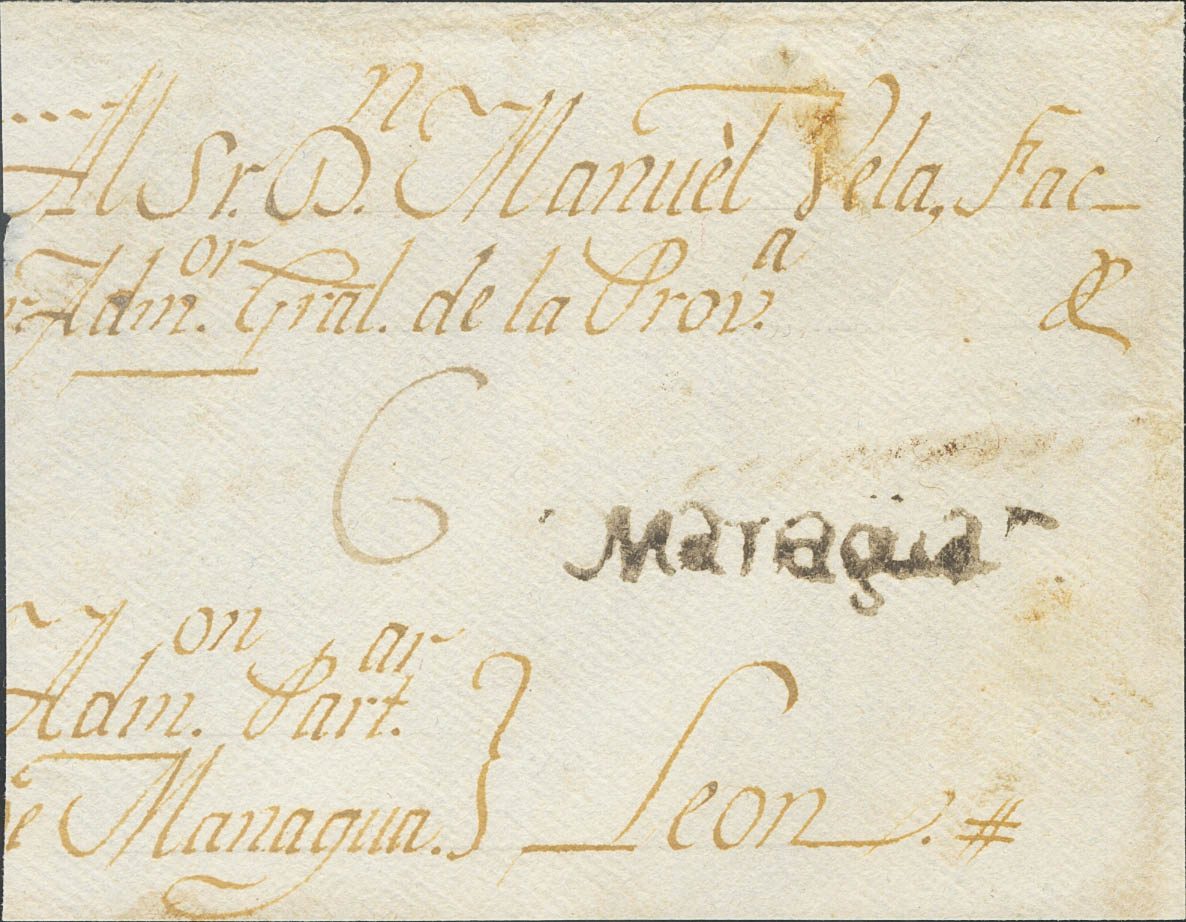 Al Sr. Dn. Manuèl Vela, Fac-
r Admor. Gral. de la Prova. &
6
Managua
Admon. Partar.
de Managua. } Leon. #